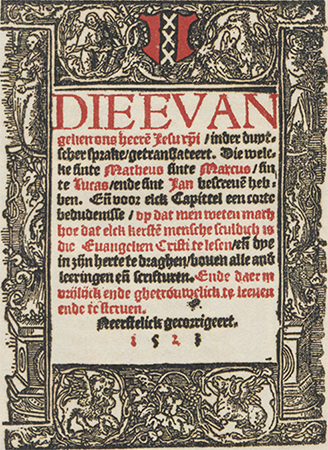 DIE EVAN
gelien ons heerē Jesu xpi / inder duyt-
scher sprake / getranslateert. Die wel-
ke sinte Matheus sinte Marcus / sin
te Lucas / ende sint Jan bescreuē heb-
ben. Eñ voor elck Capittel een corte
beduidenisse / op dat men weten mach
hoe dat elck kerstē mensche sculdich is
die Euangelien Cristi te lesen / eñ dye
in zijn herte te draghen / bouen alle and
leeringen eñ scrifturen. Ende daer in
vrölijck ende ghetrouwelick te leuen
ende te steruen.
Neerstelick gecorrigeert.
1523